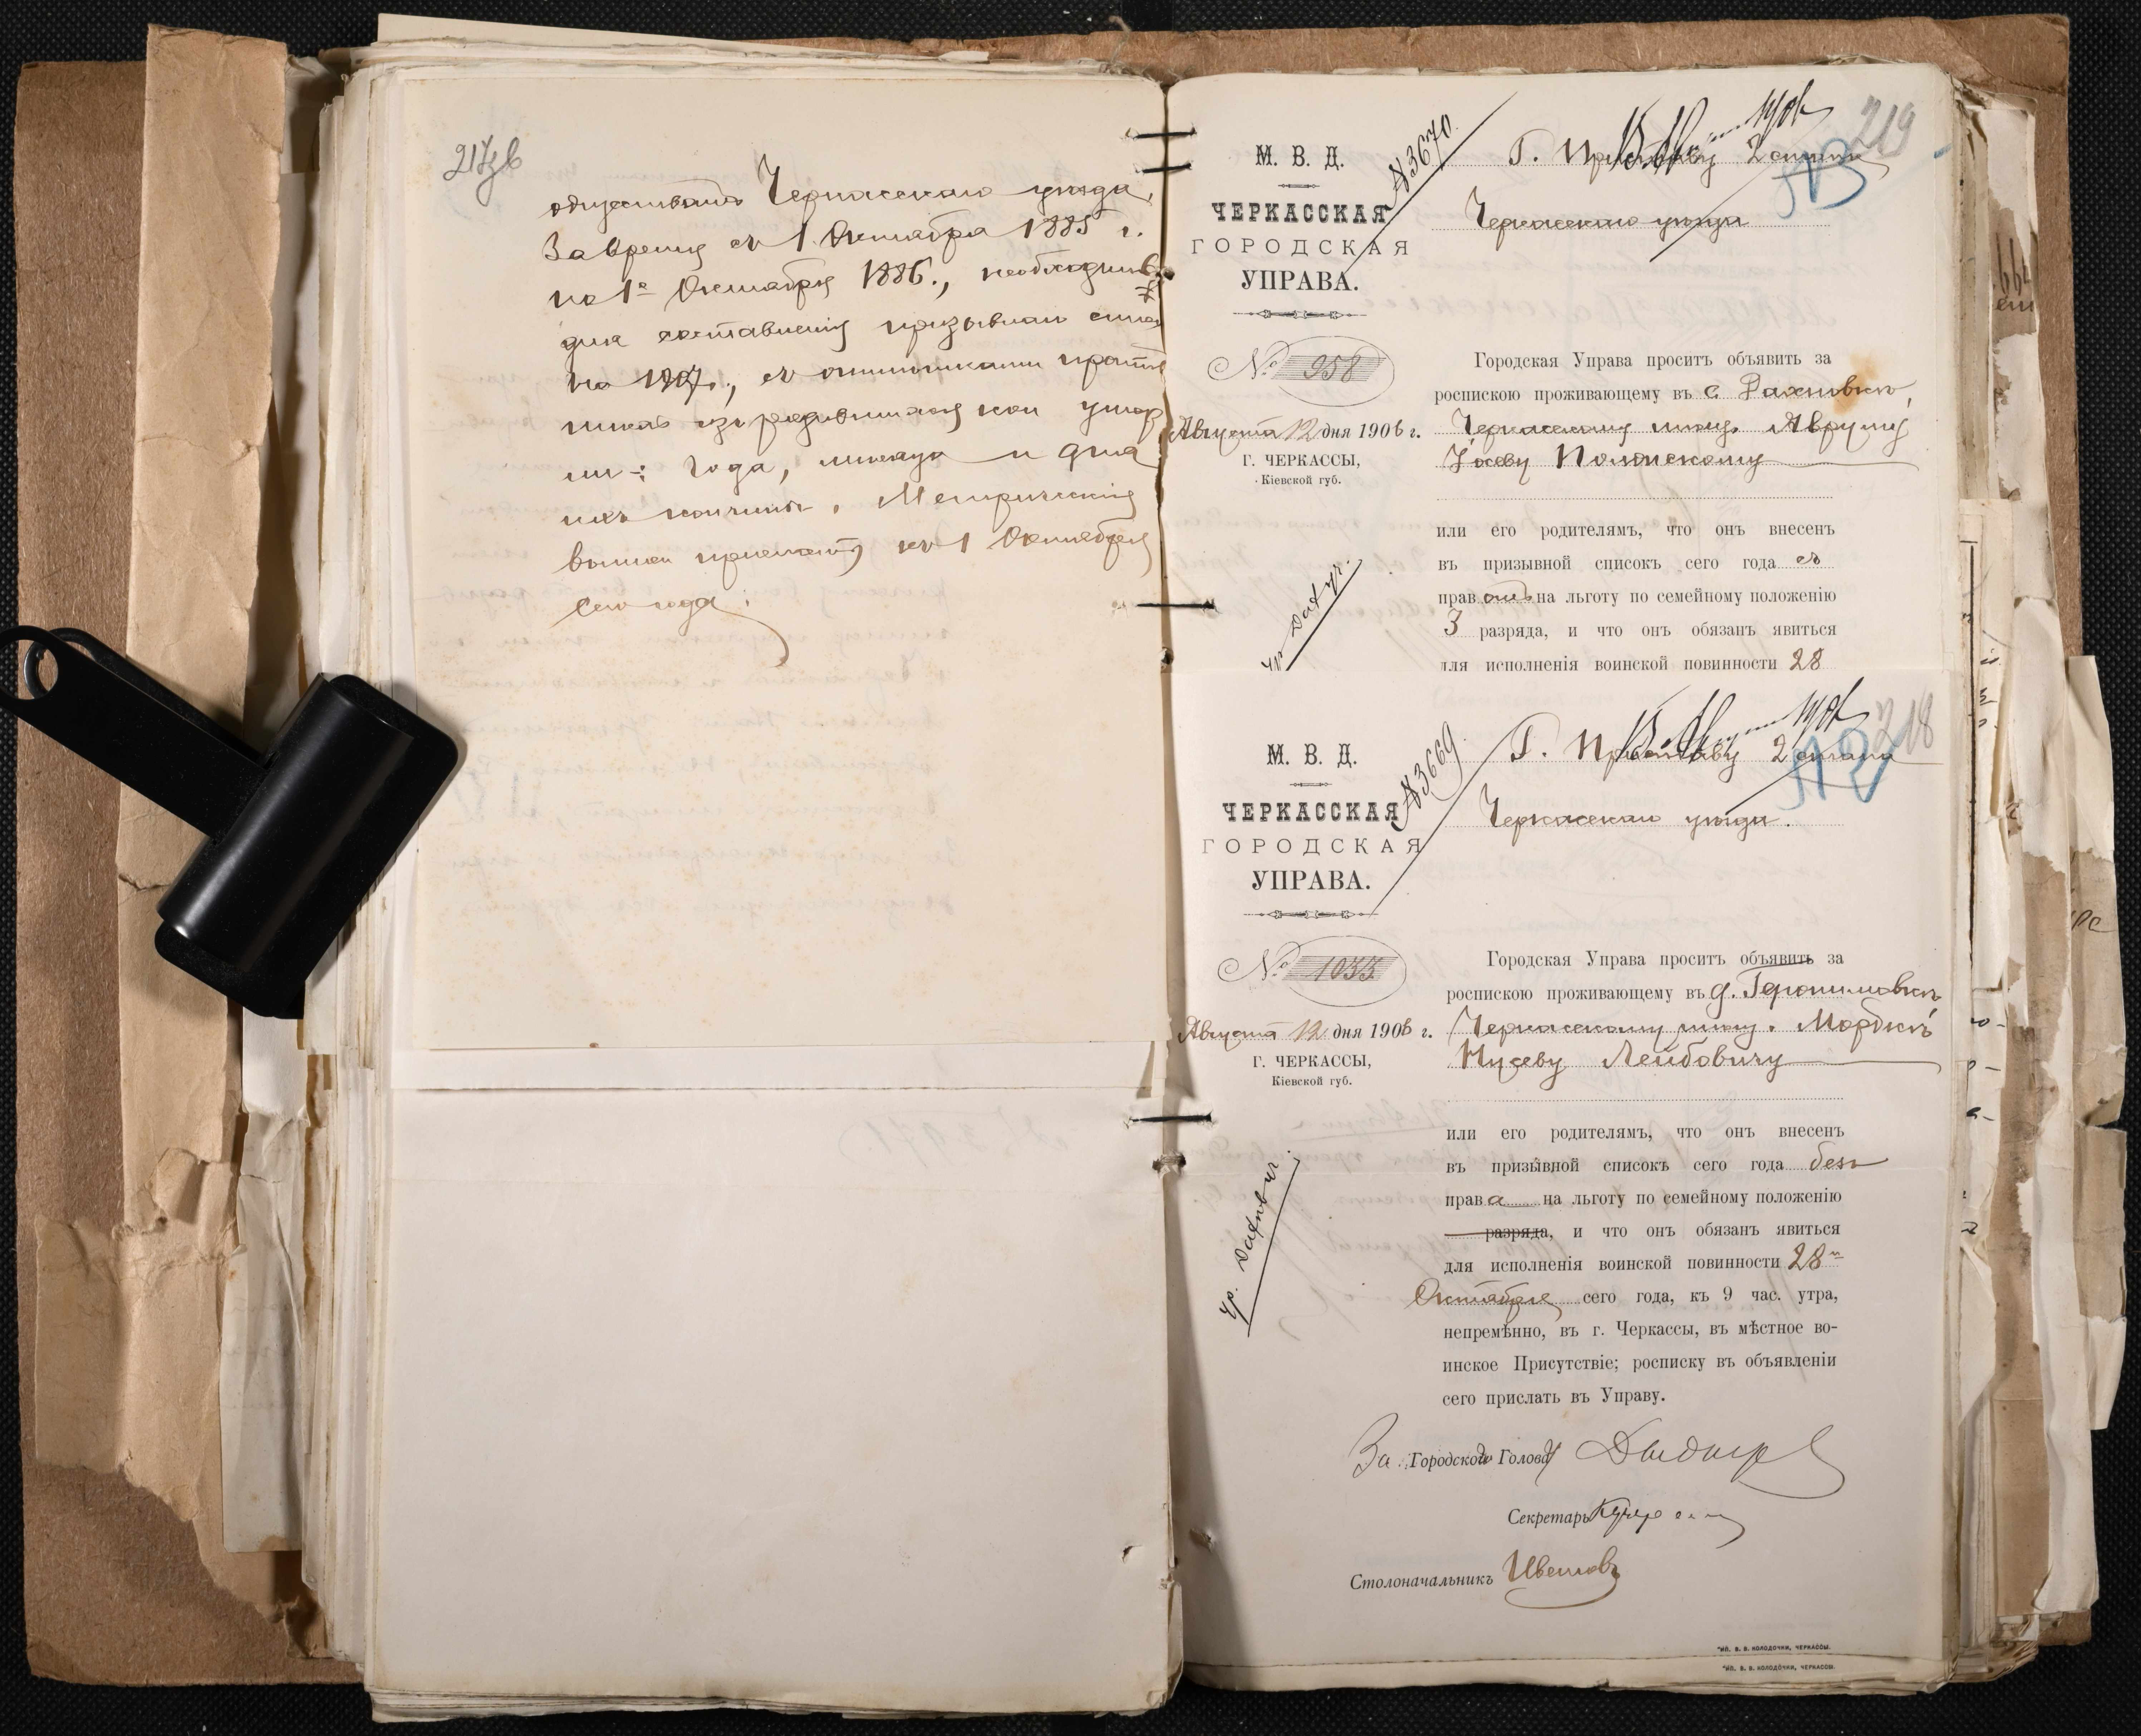 217об
обществамъ Черкасскаго уѣзда,
За время съ 1 Октября 1885 г.
по 1е Октября 1886 г., необходимыя
для составленія призывныхъ
на 1907 г., съ отмѣтками противъ
изъ родившихся кои умер
ли: года, мѣсяца и дня
ихъ кончины. Метрическія
къ 1 Октября
сего года.
219
№3670
М. В. Д.
ЧЕРКАССКАЯ
ГОРОДСКАЯ
УПРАВА.
№ 958
Августа 12 дня 1906 г.
Г. ЧЕРКАССЫ,
Кіевской губ.
Г. Приставу 2 стана
Черкасскаго уѣзда
Городская Управа проситъ объявить за
роспискою проживающему въ с.
Черкасскому мѣщ. Авруму
Полонскому
или его родителямъ, что онъ внесенъ
въ призывной списокъ сего года съ
прав на льготу по семейному положенію
3 разряда, и что онъ обязанъ явиться
для исполненія воинской повинности 28
218
№3669
М. В. Д.
ЧЕРКАССКАЯ
ГОРОДСКАЯ
УПРАВА.
№ 1033
Августа 12 дня 1906 г.
Г. ЧЕРКАССЫ,
Кіевской губ.
Г. Приставу 2 стана
Черкасскаго уѣзда.
Городская Управа проситъ объявить за
роспискою проживающему въ д. Геронимовкѣ
Черкасскому мѣщ. Мордкѣ
Нусеву Лейбовичу
или его родителямъ, что онъ внесенъ
въ призывной списокъ сего года безъ
права на льготу по семейному положенію
разряда, и что онъ обязанъ явиться
для исполненія воинской повинности 28
Октября сего года, къ 9 час. утра,
непремѣнно, въ г. Черкассы, въ мѣстное во-
инское Присутствіе; росписку въ объявленіи
сего прислать въ Управу.
За Городского Голову
Секретарь
Столоначальникъ
ТИП. В. В. КОЛОДОЧКИ, ЧЕРКАССЫ.
ТИП. В. В. КОЛОДОЧКИ, ЧЕРКАССЫ.